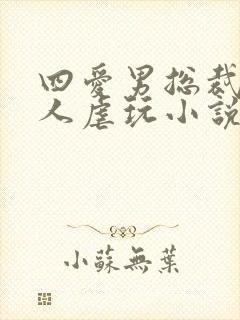 四愛男总裁
人虐玩小說
小蘇無葉